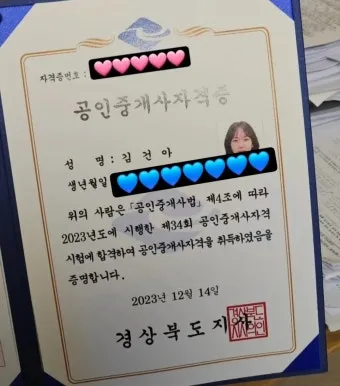 자격증번호 :
공인중개사자격증
성 명 : 김 건 아
생년월일
위의 사람은 「공인중개사법」 제4조에 따라
2023년도에 시행한 제34회 공인중개사자격
시험에 합격하여 공인중개사자격을 취득하였음을
증명합니다.
2023년 12월 14일
경상북도지사